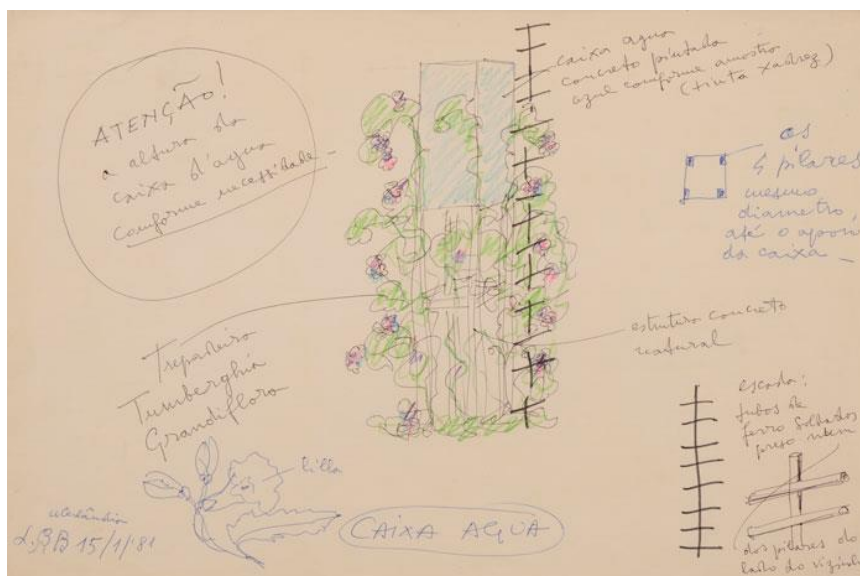 ATENÇÃO!
a altura da
caixa d'agua
conforme necessidade -
caixa agua
concreto pintada
azul conforme amostra
(tinta xadrez)
os
4 pilares
mesmo
diametro,
até o apoio
da caixa -
Trepadeira
Tumberghia
Grandiflora
estrutura concreto
natural
escada:
tubos de
ferro soldados
preso
dos pilares do
lado do vizinho
lilla
Uberlândia
L.BB 15/1/81
CAIXA AGUA